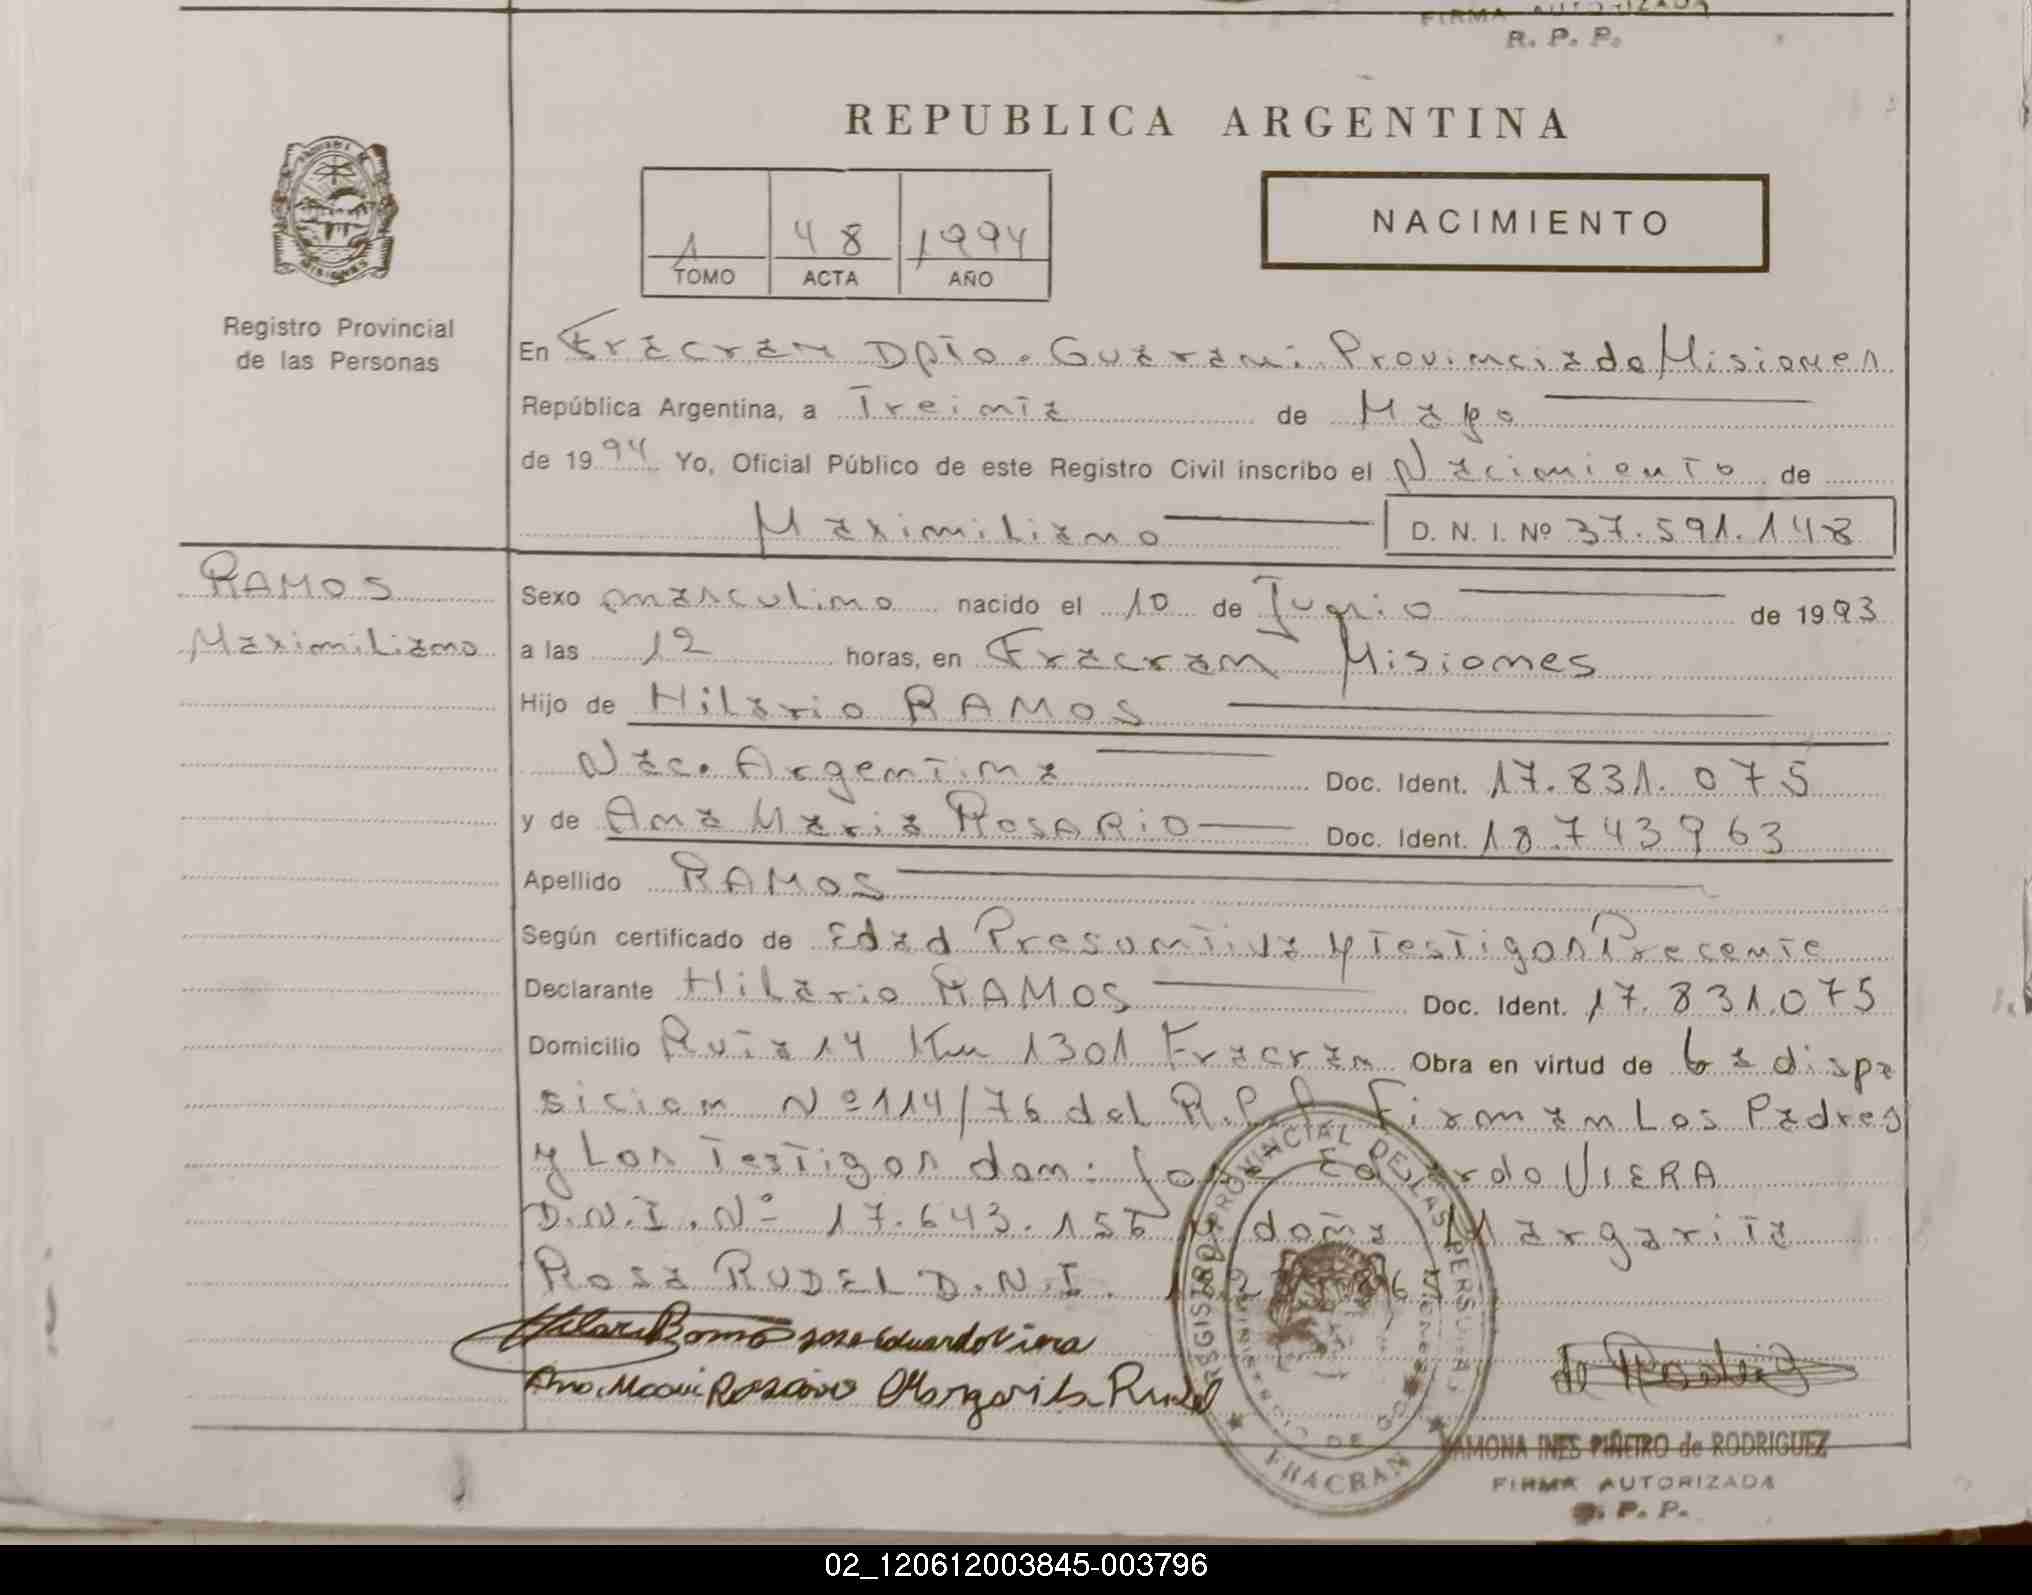 FIRMA AUTORIZADA
R. P. P.
REPUBLICA ARGENTINA
MISIONES
1 48 1994
TOMO ACTA AÑO
NACIMIENTO
Registro Provincial
de las Personas
En Fracran Dpto. Guarani Provincia de Misiones
República Argentina, a Treinta de Mayo
de 1994 Yo, Oficial Público de este Registro Civil inscribo el Nacimiento de
Maximiliano D. N. I. Nº 37.591.148
RAMOS
Maximiliano
Sexo masculino nacido el 10 de Junio de 1993
a las 12 horas, en Fracran Misiones
Hijo de Hilario RAMOS
Nac. Argentina Doc. Ident. 17.831.075
y de Ana Maria ROSARIO Doc. Ident. 18.743963
Apellido RAMOS
Según certificado de Edad Presuntiva y Testigos Precente
Declarante Hilario RAMOS Doc. Ident. 17.831.075
Domicilio Ruta 14 Km 1301 Fracran Obra en virtud de La dispo
sicion Nº 114/76 del R.P.P. Firman Los Padres
y Los Testigos don: Jose Eduardo VIERA
D.N.I. Nº 17.643.156 y doña Margarita
Rosa RUDEL D.N.I.
Hilario Ramos Jose Eduardo Viera
Ana Maria Rosario Margarita Rudel
REGISTRO PROVINCIAL DE LAS PERSONAS
MINISTERIO DE GOBIERNO
FRACRAN
RAMONA INES PIÑEIRO de RODRIGUEZ
FIRMA AUTORIZADA
R. P. P.
02_120612003845-003796